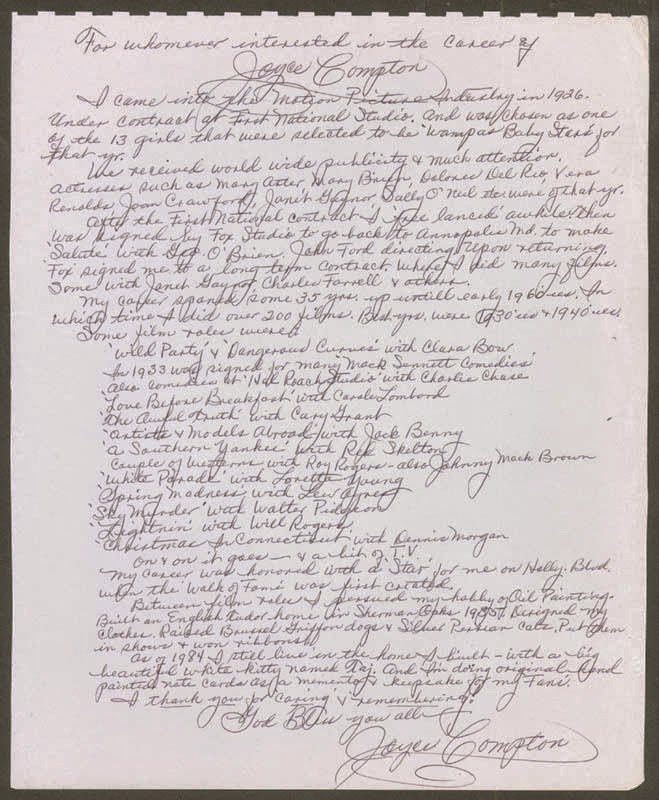 For whomever interested in the career of
Joyce Compton
I came into the Motion Picture Industry in 1926.
Under contract at First National Studio. And was chosen as one
of the 13 girls that were selected to be 'Wampas Baby Stars for
that yr.
We received world wide publicity & much attention.
actresses such as Mary Astor, Mary Brian, Dolores Del Rio, Vera
Renolds Joan Crawford, Janet Gaynor, Sally O'Neil etc. were of that yr.
After the First National contract I free lanced awhile. Then
was signed by Fox Studio to go back to Annapolis Md. to make
'Salute' with Geo. O'Brien. John Ford directing. Upon returning,
Fox signed me to a long term contract. Where I did many films.
Some with Janet Gaynor Charles Farrell & others.
My career spaned some 35 yrs. up untill early 1960'ies. In
which time I did over 200 films. Best yrs. were 1930'ies & 1940'ies.
Some film roles were:
'Wild Party' & 'Dangerous Curves' with Clara Bow.
In 1933 was signed for many 'Mack Sennett Comedies'
also comedies at 'Hal Roach Studio' with Charlie Chase
'Love Before Breakfast' with Carole Lombard
'The Awful Truth' with Cary Grant
'Artists & Models Abroad' with Jack Benny
'A Southern Yankee' with Red Skelton
Couple of Westerns with Roy Rogers - also Johnny Mack Brown
'White Parade' with Loretta Young
'Spring Madness' with Lew Ayres
'Sky Murder' with Walter Pidgeon
'Lightnin' with Will Rogers
'Christmas In Connecticut' with Dennis Morgan
On & on it goes - & a bit of T.V.
My career was honored with a 'Star' for me on Holly. Blvd.
when the 'Walk of Fame' was first created.
Between film roles I persued my hobby of Oil Painting.
Built an English tudor home in Sherman Oaks Designed my
clothes. Raised Brussel Griffon dogs & Silver Persian Cats. Put them
in shows & won ribbons!
As of 1984 I still live in the home I built - with a big
beautiful white kitty named Taj. And I'm doing original hand
painted note cards as a memento & keepsake for my Fans.
I thank you for caring & remembering!
God Bless you all
Joyce Compton